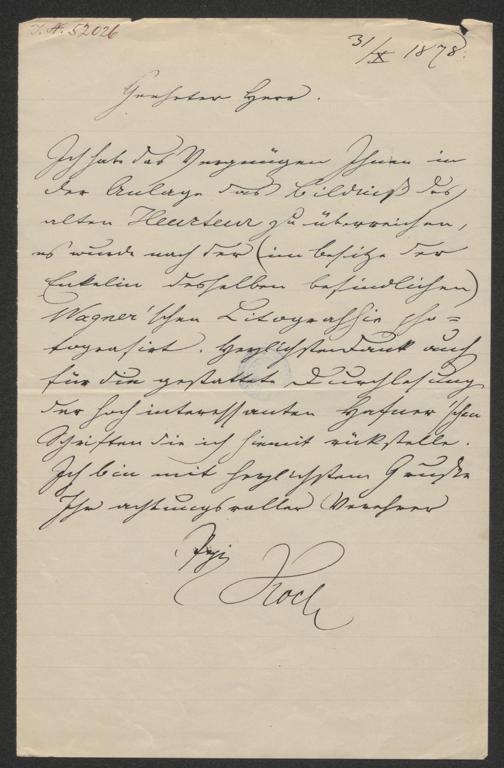 I. N. 52026
31/X 1878.
Geehrter Herr.
Ich habe das Vergnügen Ihnen in
der Anlage das Bildniß des
alten Heurteur zu überreichen,
es wurde nach der (im besitze der
Enkelin desselben befindlichen)
Wagner'schen Litografie pho=
tografirt. Herzlichsten dank auch
für die gestattete Durchlesung
der hoch interessanten Hafner'schen
Schriften die ich hiemit rückstelle.
Ich bin mit herzlichstem Gruße
Ihr achtungsvoller Verehrer
Koch